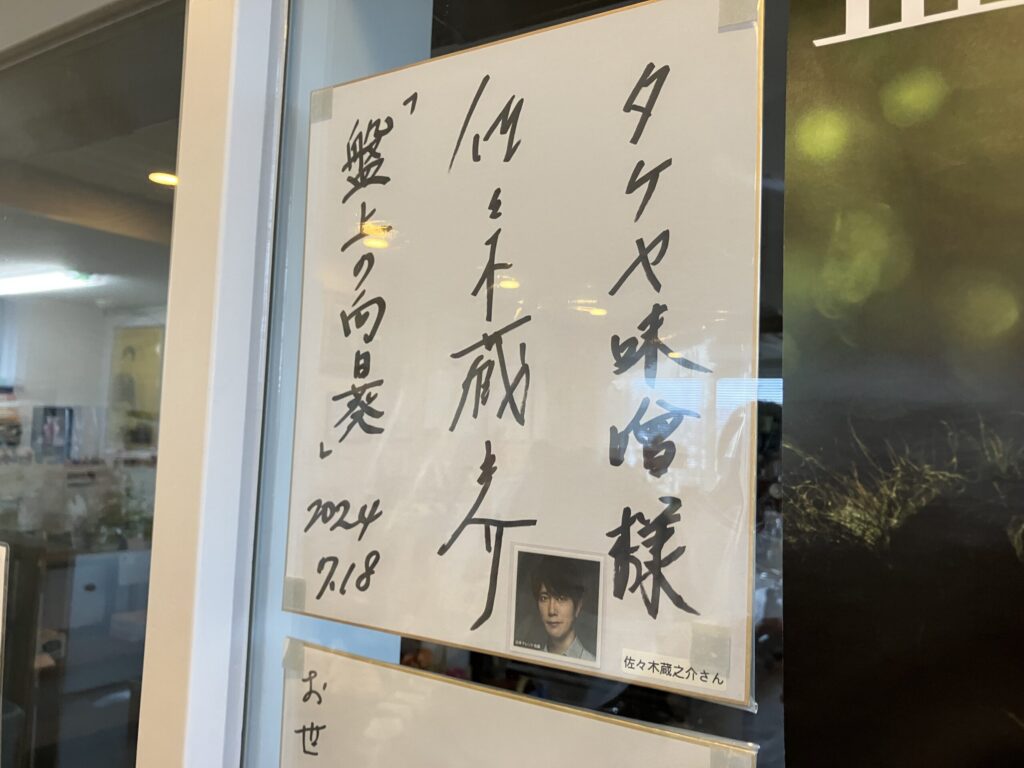 タケヤ味噌様
佐々木蔵之介
「盤上の向日葵」
2024
7.18
佐々木蔵之介さん
お世